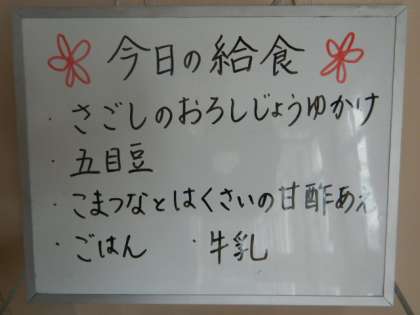 今日の給食
・さごしのおろしじょうゆかけ
・五目豆
・こまつなとはくさいの甘酢あえ
・ごはん ・牛乳